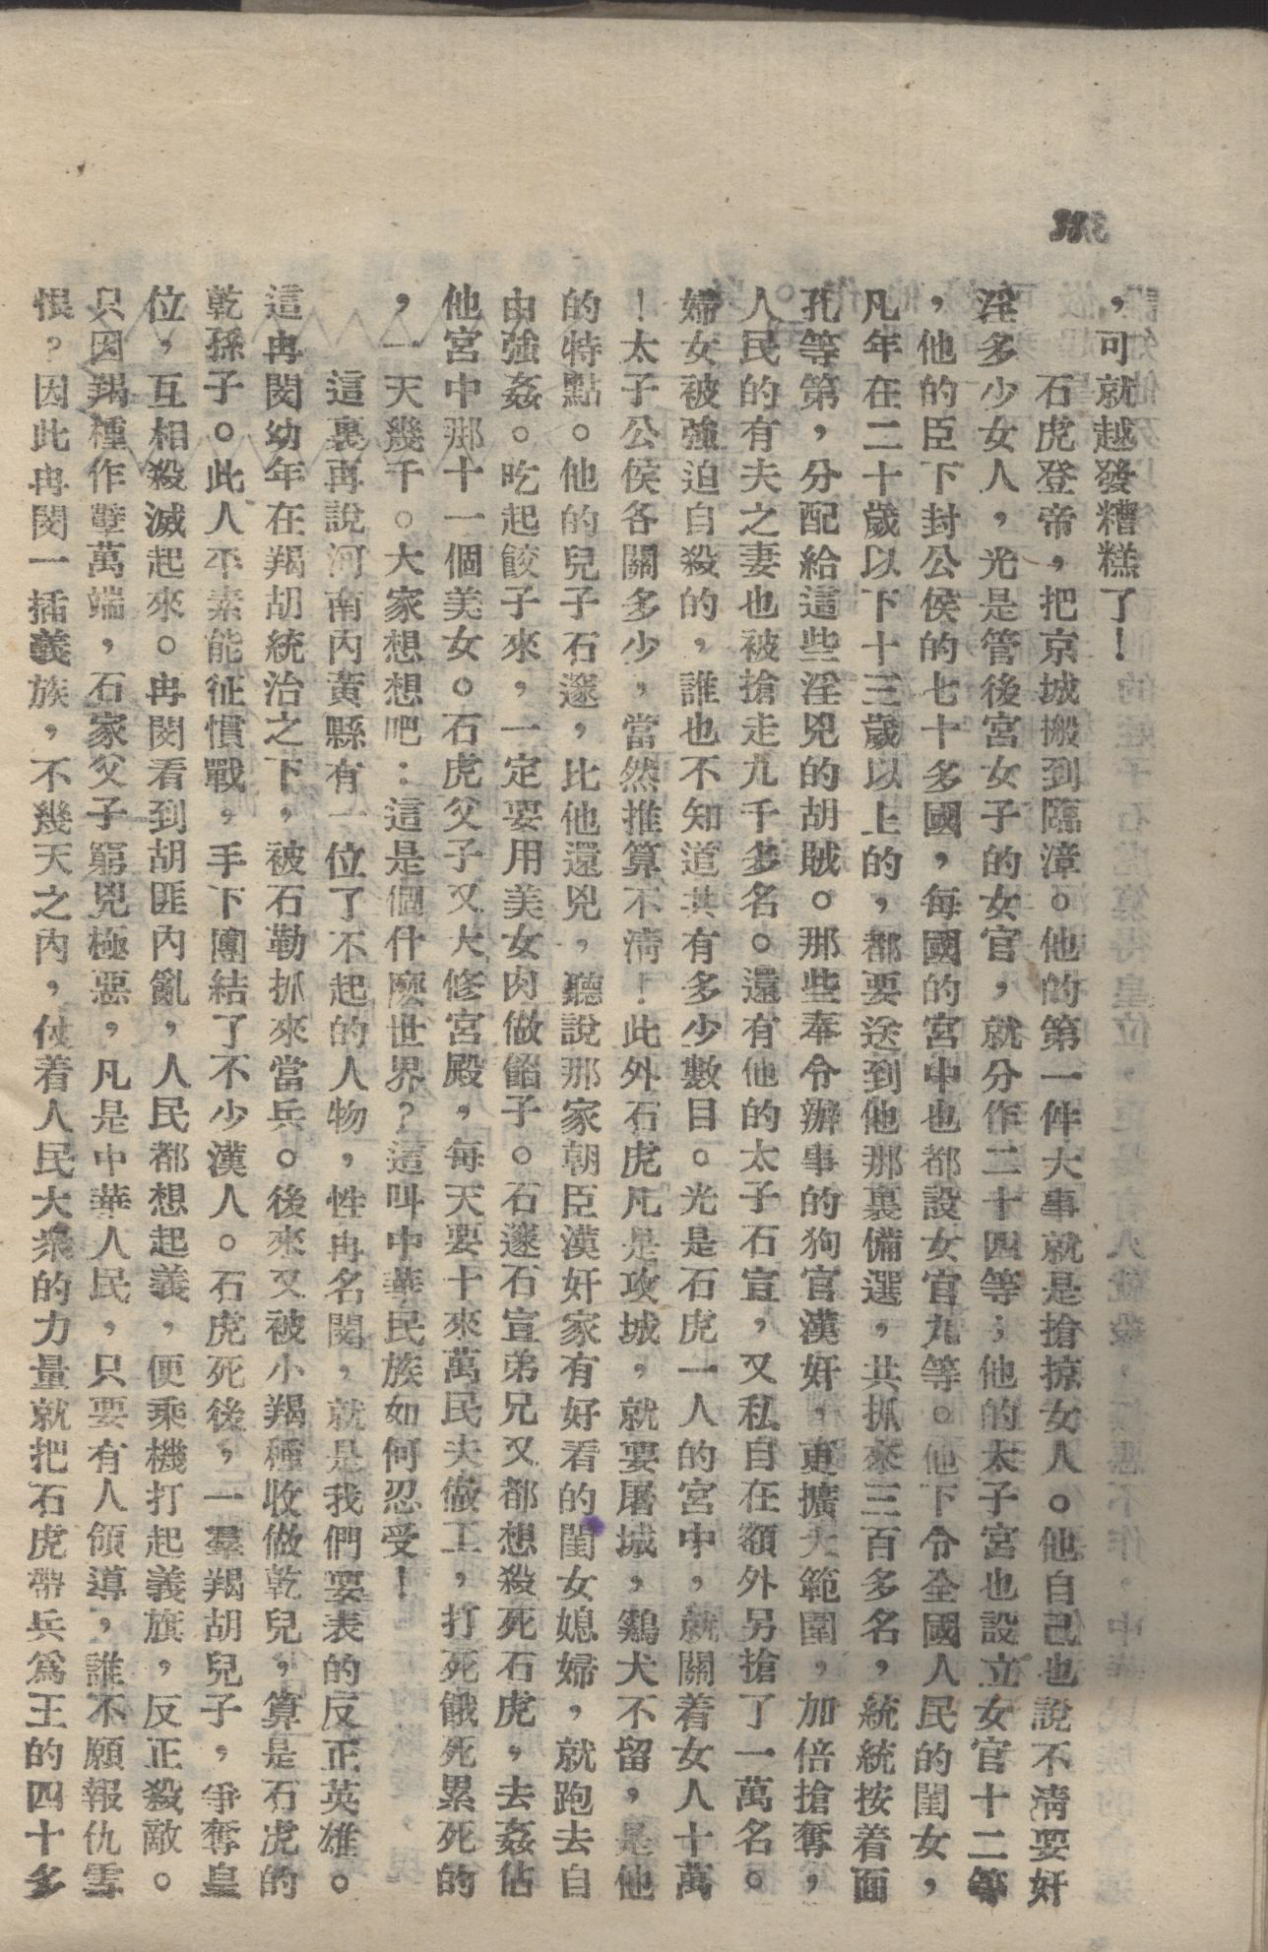 ，可就越發糟糕了！
石虎登帝，把京城搬到臨漳。他的第一件大事就是搶掠女人。他自己也說不清要奸
淫多少女人，光是管後宮女子的女官，就分作二十四等；他的太子宮也設立女官十二等
，他的臣下封公侯的七十多國，每國的宮中也都設女官九等。他下令全國人民的閨女，
凡年在二十歲以下十三歲以上的，都要送到他那裏備選，共抓來三百多名，統統按着面
孔等第，分配給這些淫兇的胡賊。那些奉令辦事的狗官漢奸，更擴大範圍，加倍搶奪，
人民的有夫之妻也被搶走九千多名。還有他的太子石宣，又私自在額外另搶了一萬名。
婦女被強迫自殺的，誰也不知道共有多少數目。光是石虎一人的宮中，就關着女人十萬
！太子公侯各關多少，當然推算不清！此外石虎凡是攻城，就要屠城，鷄犬不留，是他
的特點。他的兒子石邃，比他還兇，聽說那家朝臣漢奸家有好看的閨女媳婦，就跑去自
由強姦。吃起餃子來，一定要用美女肉做餡子。石邃石宣弟兄又都想殺死石虎，去姦佔
他宮中那十一個美女。石虎父子又大修宮殿，每天要十來萬民夫做工，打死餓死累死的
，一天幾千。大家想想吧：這是個什麼世界？這叫中華民族如何忍受！
這裏再說河南內黃縣有一位了不起的人物，性冉名閔，就是我們要表的反正英雄。
這冉閔幼年在羯胡統治之下，被石勒抓來當兵。後來又被小羯種收做乾兒，算是石虎的
乾孫子。此人平素能征慣戰，手下團結了不少漢人。石虎死後，一羣羯胡兒子，爭奪皇
位，互相殺滅起來。冉閔看到胡匪內亂，人民都想起義，便乘機打起義旗，反正殺敵。
只因羯種作孽萬端，石家父子窮兇極惡，凡是中華人民，只要有人領導，誰不願報仇雪
恨？因此冉閔一插義族，不幾天之內，仗着人民大衆的力量就把石虎帶兵爲王的四十多